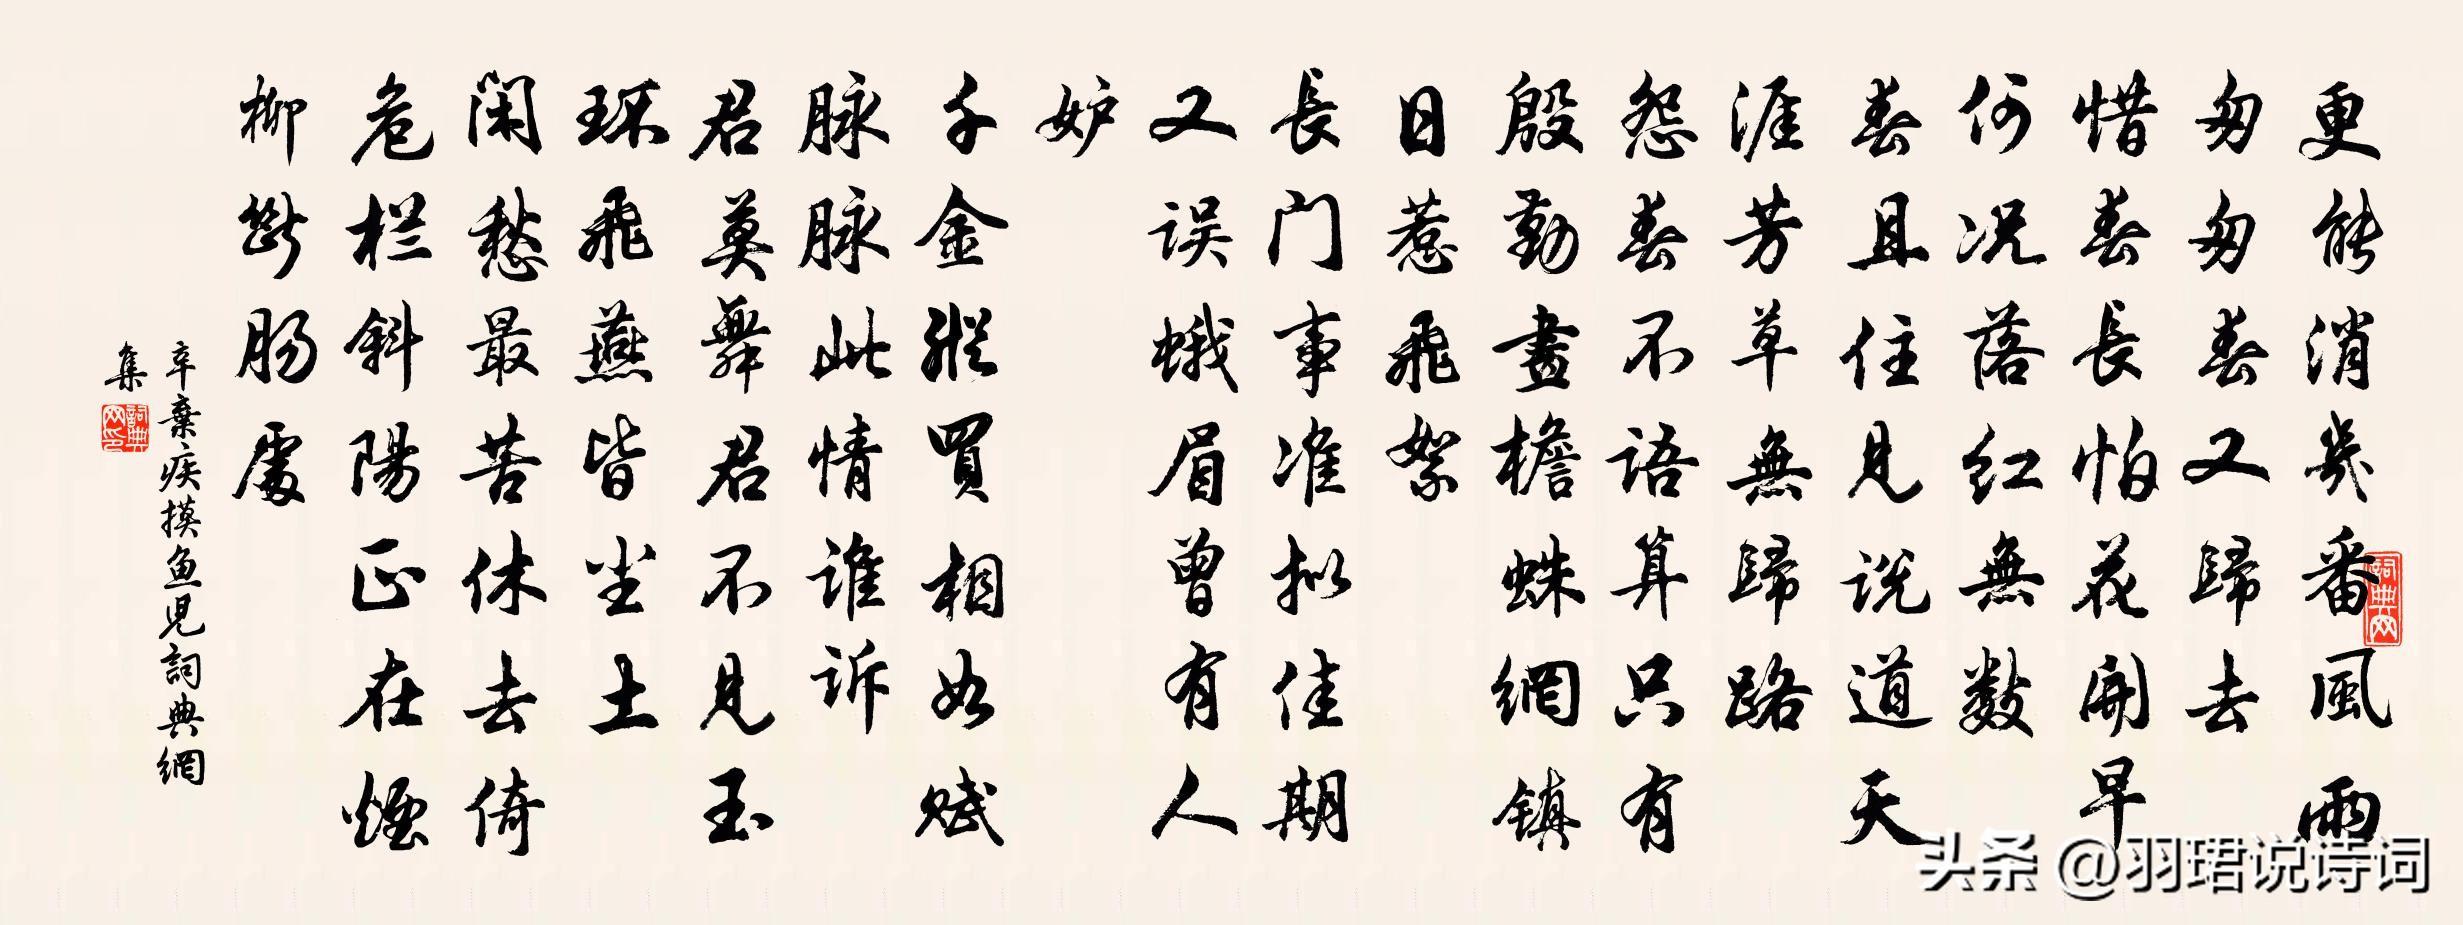 更能消幾番風雨
匆匆春又歸去
惜春長怕花開早
何况落红無数
春且住見说道天
涯芳草無歸路
怨春不语算只有
殷勤畫檐蛛網镇
日惹飛絮
長门事准拟佳期
又误蛾眉曾有人
妒
千金縱買相如赋
脉脉此情谁诉
君莫舞君不見玉
环飛燕皆尘土
闲愁最苦休去倚
危栏斜陽正在煙
柳斷肠處
辛棄疾摸鱼兒詞典網
集
詞典网印
詞典网
头条 @羽珺说诗词